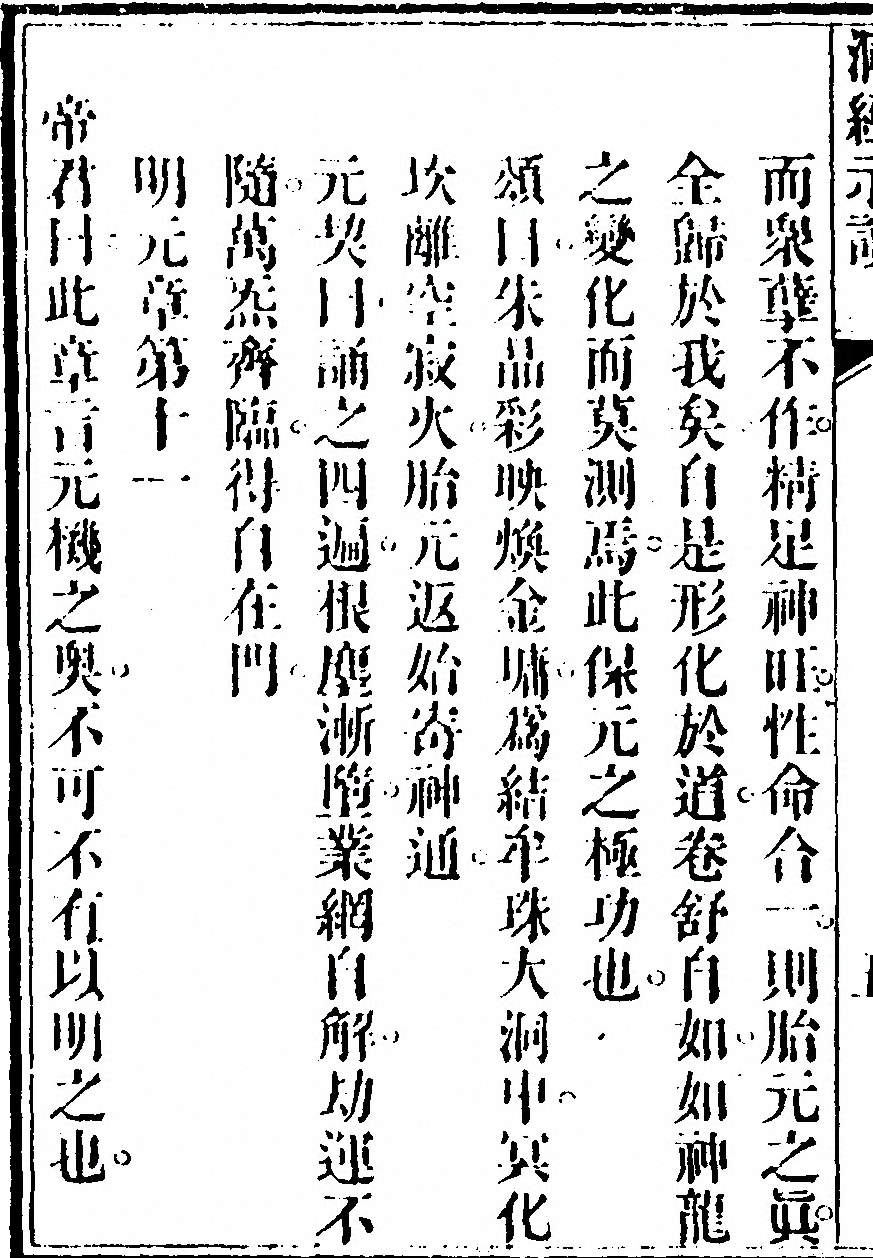 洞經示讀
而衆孽不作精足神旺性命合一則胎元之眞
全歸於我矣自是形化於道卷舒自如如神龍
之變化而莫測焉此保元之極功也
頌曰朱晶彩映煥金墉爲結牟珠大洞中冥化
坎離空寂火胎元返始寄神通
元契曰誦之四遍根塵漸墮業網自解劫運不
隨萬炁齊臨得自在門
明元章第十一
帝君曰此章言元機之奧不可不有以明之也